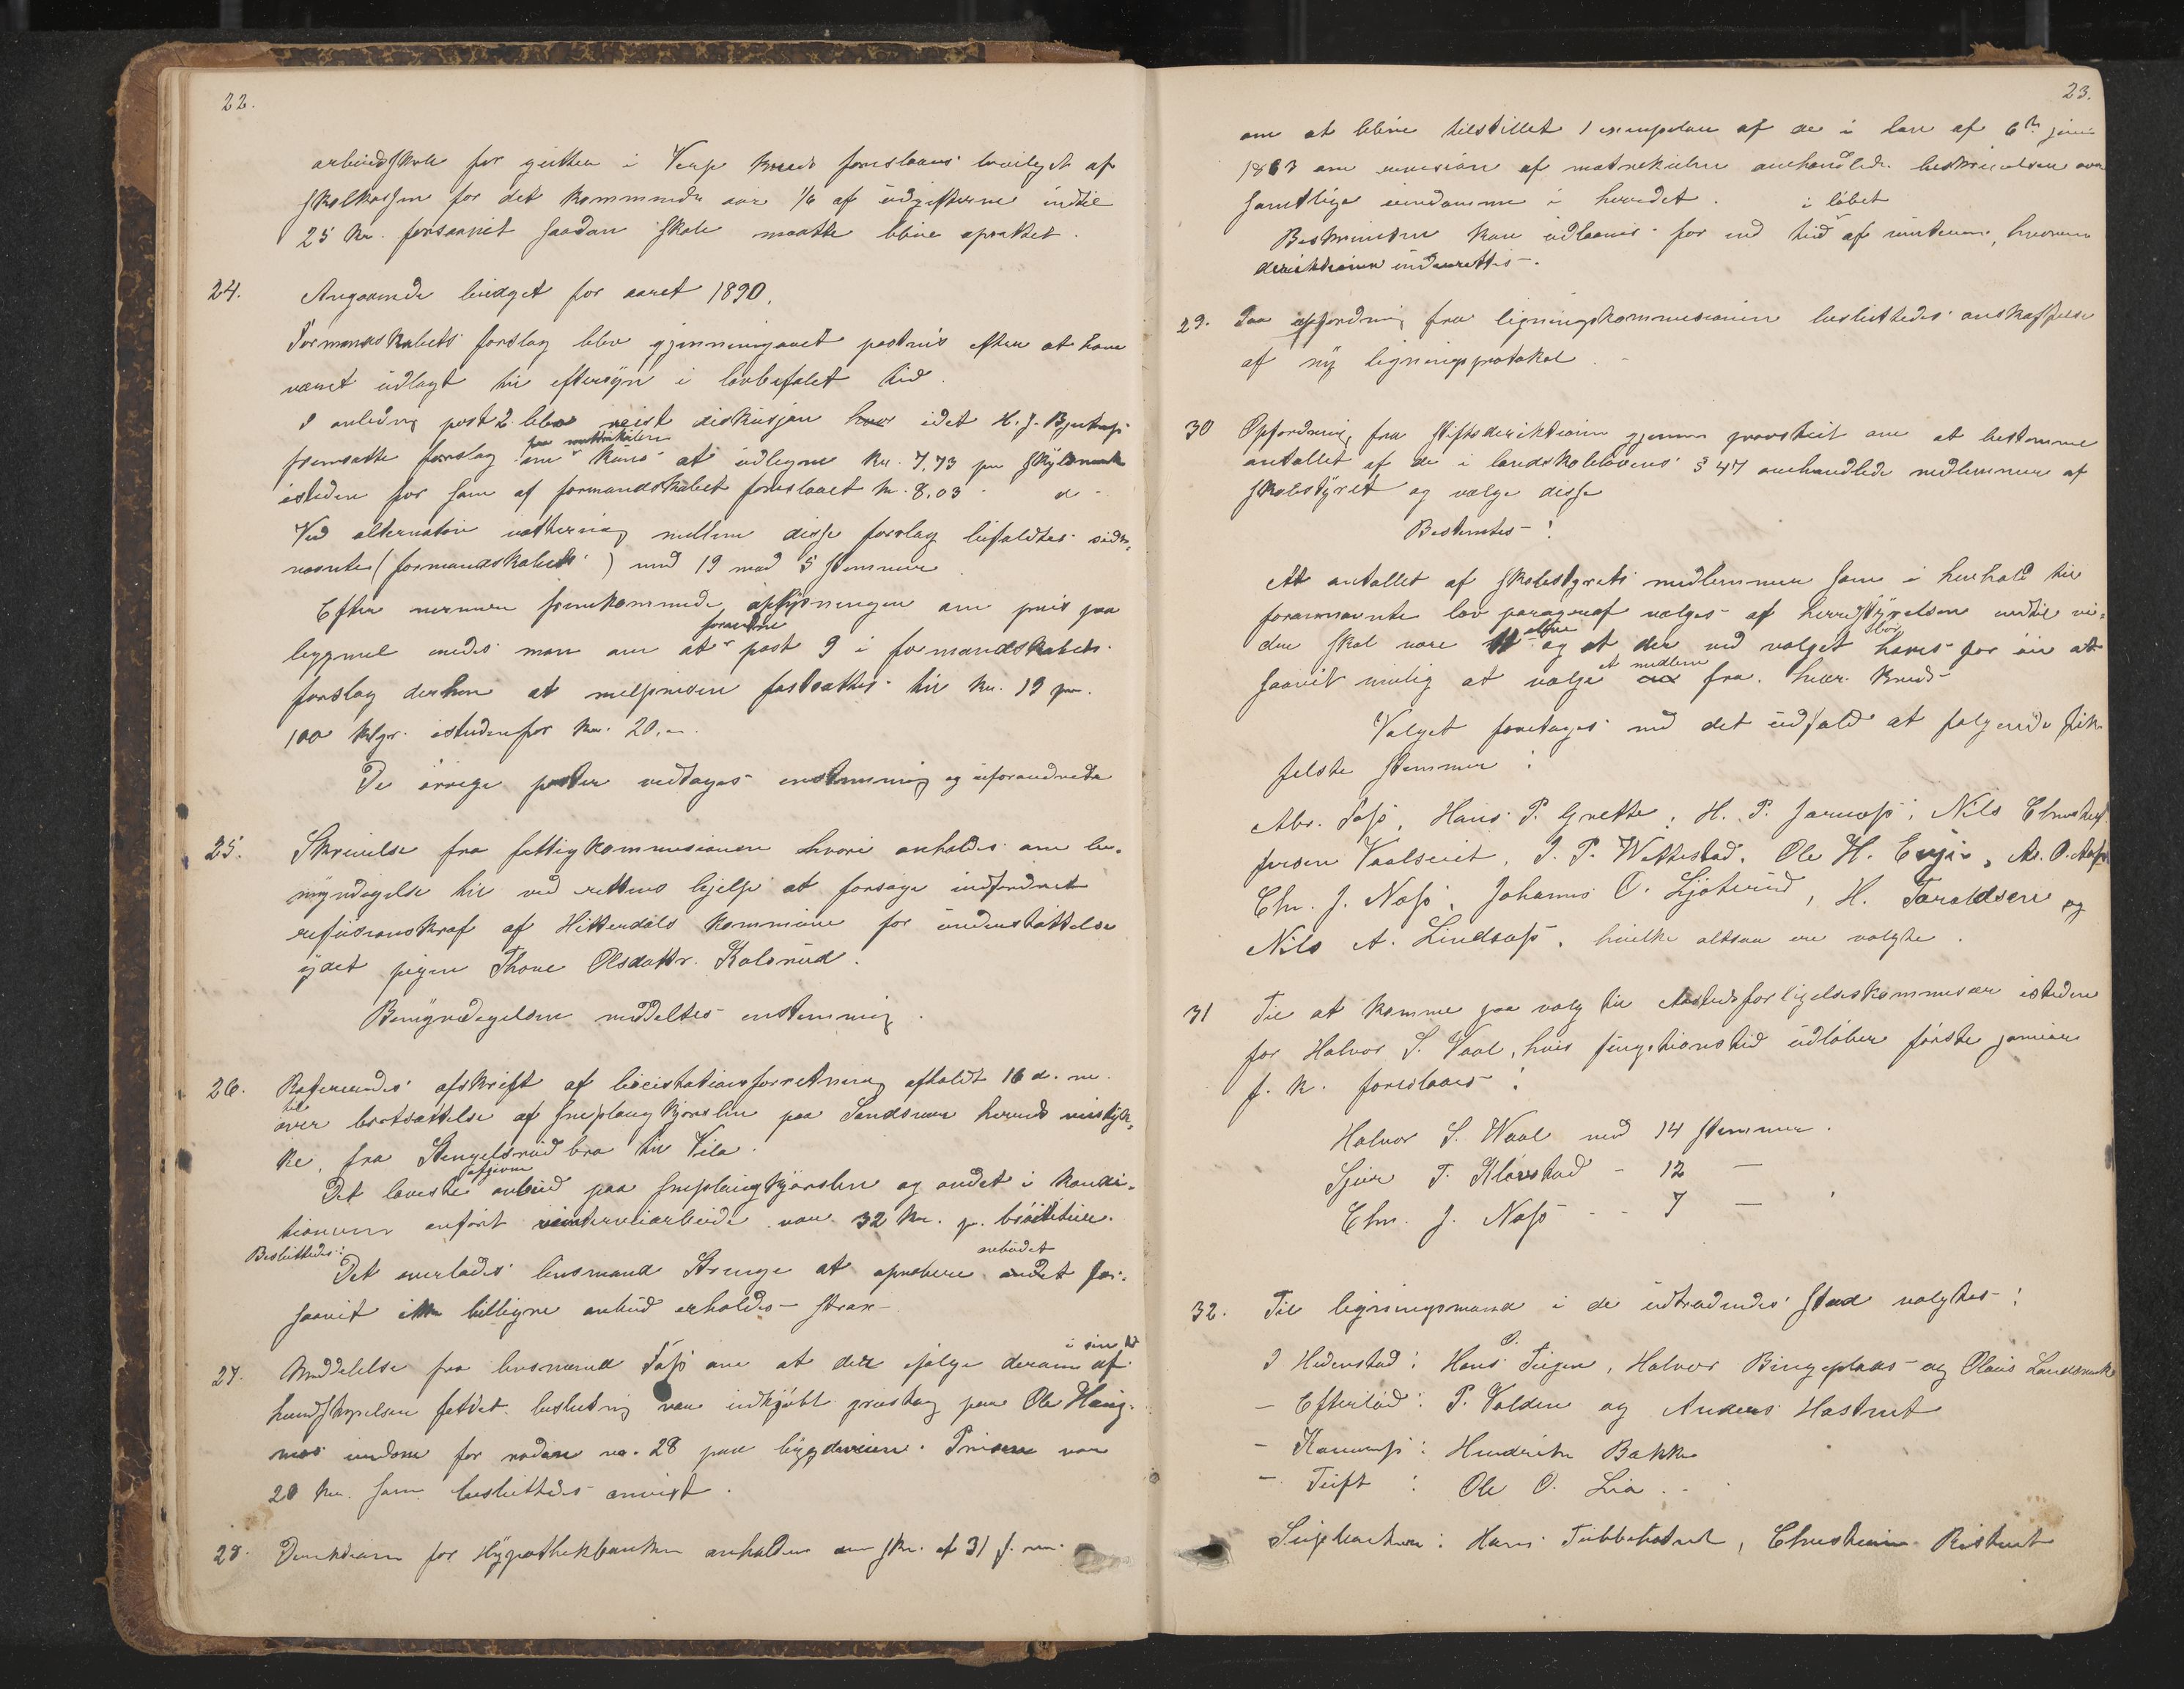 22.
arbeidsskole for gutter i Verp kreds foreslaaes bevilget af
skolkassen for det kommende aar 1/6 af udgifterne indtil
25 kr. forsaavit saadan skole maatte blive oprettet.
24. Angaaende budget for aaret 1890.
Formandskabets forslag blev gjennemgaaet postvis efter at have
været udlagt til eftersyn i lovbefalet tid.
I anledning post 2 blev reist diskusjon idet H. J.
fremsatte forslag om kuns at udligne kr. 7,73 pr skyldmark
for matrikulen
isteden for som af formandskabet foreslaaet kr. 8,03 - d -
Ved alternativ votering mellem disse forslag bifaldtes sidst,
nævnte (formandskabets) med 19 mod 5 stemmer
Efter nermere fremkommende oplysninger om pris paa
forandre
bygmel enedes man om at post 9 i formandskabets
forslag derhen at melprisen fastsættes til kr. 19 pr.
100 klgr. istedenfor kr. 20,-.
De øvrige poster vedtages enstemmig og uforandrede
25. Skrivelse fra fattigkommissionen hvori anholdes om be-
myndigelse til ved rettens hjelp at forsøge inddrevet
refusionskrav af Hitterdals kommune for understøttelse
ydet pigen Thone Olsdatr. Kolsrud.
Bemyndigelsen meddeltes enstemmig.
26. Refereredes afskrift af licitationsforretning afholdt 16 d. m.
til
over bortsættelse af sneplougkjørslen paa Sandsvær herreds veistyk,
ke, fra Stengelsrud bro til Vila.
afgivne
Det laveste anbud paa sneplougkjørslen og andet i kondi-
tionerne anført vinterveiarbeide var 32 kr. pr.
Besluttedes:
anbudet
Det overlades lensmand Strange at aprobere andet for-
saavit ikke billigere anbud erholdes strax
i sin tid
27. Meddelelse fra lensmand Fass om at der ifølge derom af
herredstyrelsen fattet beslutning var indkjøbt grustag paa Ole
eiendom for roden no. 28 paa bygdeveien. Prisen var
20 kr. som besluttedes anvist.
28. Direktionen for Hypothekbanken anholder om skr. af 31 f. m.
23.
om at blive tilstillet 1 exemplar af de i lov af 6te juni
1863 om revision af matrikulen omhandlede beskrivelser over
samtlige eiendomme i herredet.
i løbet
Beskrivelser kan udlaanes for en tid af vinteren, hvorom
direktionen underrettes.
29. Paa opfordring fra ligningskommissionen besluttedes anskaffelse
af ny ligningsprotokol.
30 Opfordring fra stiftsdirektionen gjennem provsteit om at bestemme
antallet af de i landskolelovens § 47 omhandlede medlemmer af
skolestyret og vælge disse
Bestemtes:
At antallet af skolestyrets medlemmer som i henhold til
forannævnte lov paragraf vælges af herredstyrelsen indtil vi-
elleve
bør
dere skal være og at der ved valget haves for øie at
et medlem
saavit mulig at vælge fra hver kreds
Valget foretages med det udfald at følgende fik
fleste stemmer:
Abr. Fass, Hans P. Grette, H. P. Jarnæss, Nils Christof-
fersen Vaalseiet, J. P. Wettestad, Ole H. Engie,
Chr. J. Nass, Johannes O. Ljøterud, H. Taraldsen og
Nils A. Lindsaass, hvilke altsaa ere valgte.
31 Til at komme paa valg til forligelseskommisær isteden
for Halvor S. Vaal, hvis funktionstid udløber første januar
f. k. foreslaaes:
Halvor S. Waal med 14 stemmer.
Sjur T. Kløvstad - 12 -
Chr. J. Nass - - 7 -
32. Til ligningsmænd i de udtrædendes sted valgtes:
O.
I Hedenstad: Hans Teigen, Halvor Bingeplads og Olaus Landsverk
- Efteløt: P. Volden og Anders Hostvet
- Komnæs: Hendrik Bakke
- Tuft: Ole O. Lia.
Supleanter: Hans, Christian Ristvet